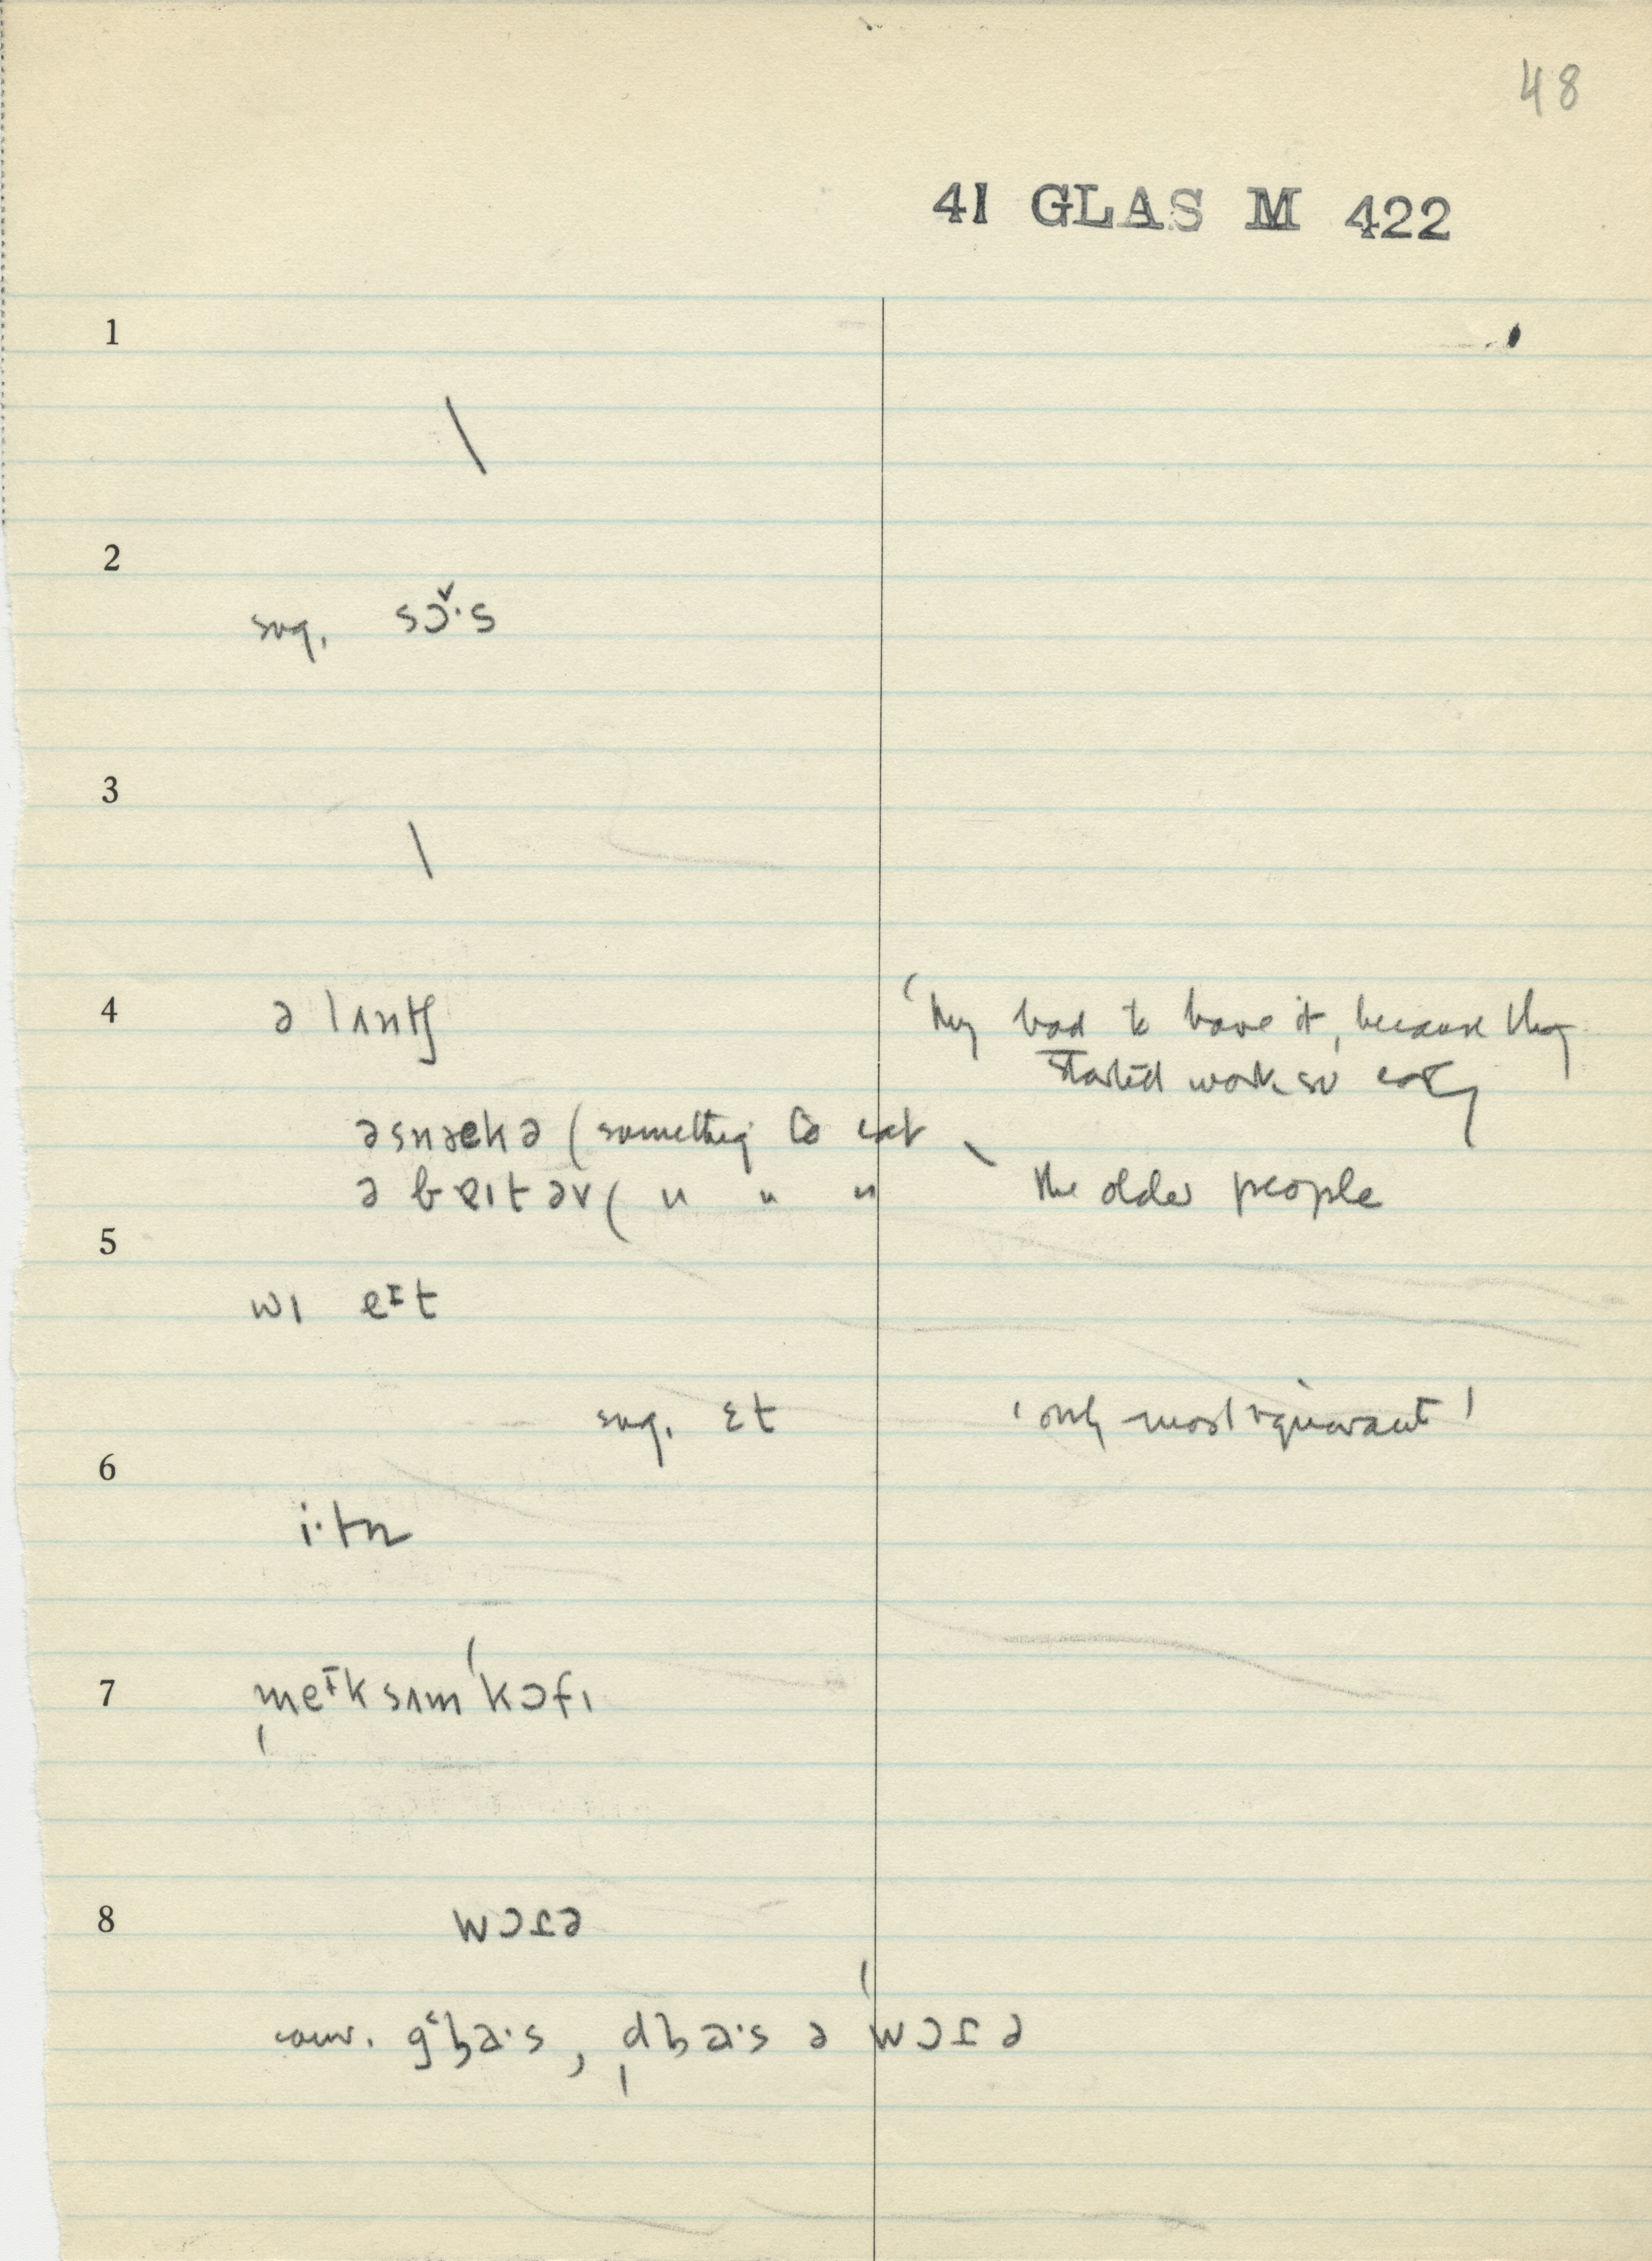 48
41 GLAS M 422
1
\
2
sug. sɔ̌·s
3
\
4 ə lʌntʃ ‘they had to have it, because they
started work so early
ə snæk ə (something to eat
ə beɪt əv ( " " " \ the older people
5
wɪ eᴵt
sug. ɛt ‘only most ignorant’
6
i·tn
7 meᴵk sʌm ˈkɔfɪ
8 wɔɾə
conv. gḷa·s, glɑ·s ə ˈwɔɾə